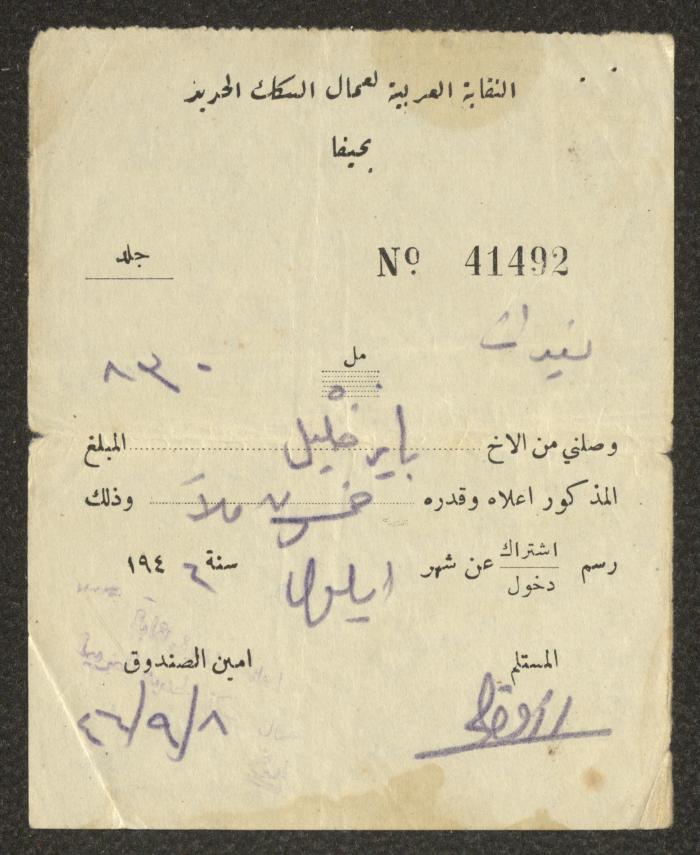 النقابة العربية لعمال السكك الحديد
بحيفا
جلد
Nº 41492
مل
٥٠
وصلني من الاخ بايز خليل المبلغ
المذكور اعلاه وقدره خمسون ملاً وذلك
رسم اشتراك دخول عن شهر ايلول سنة ١٩٤٦
المستلم امين الصندوق
٤٦/٩/٨